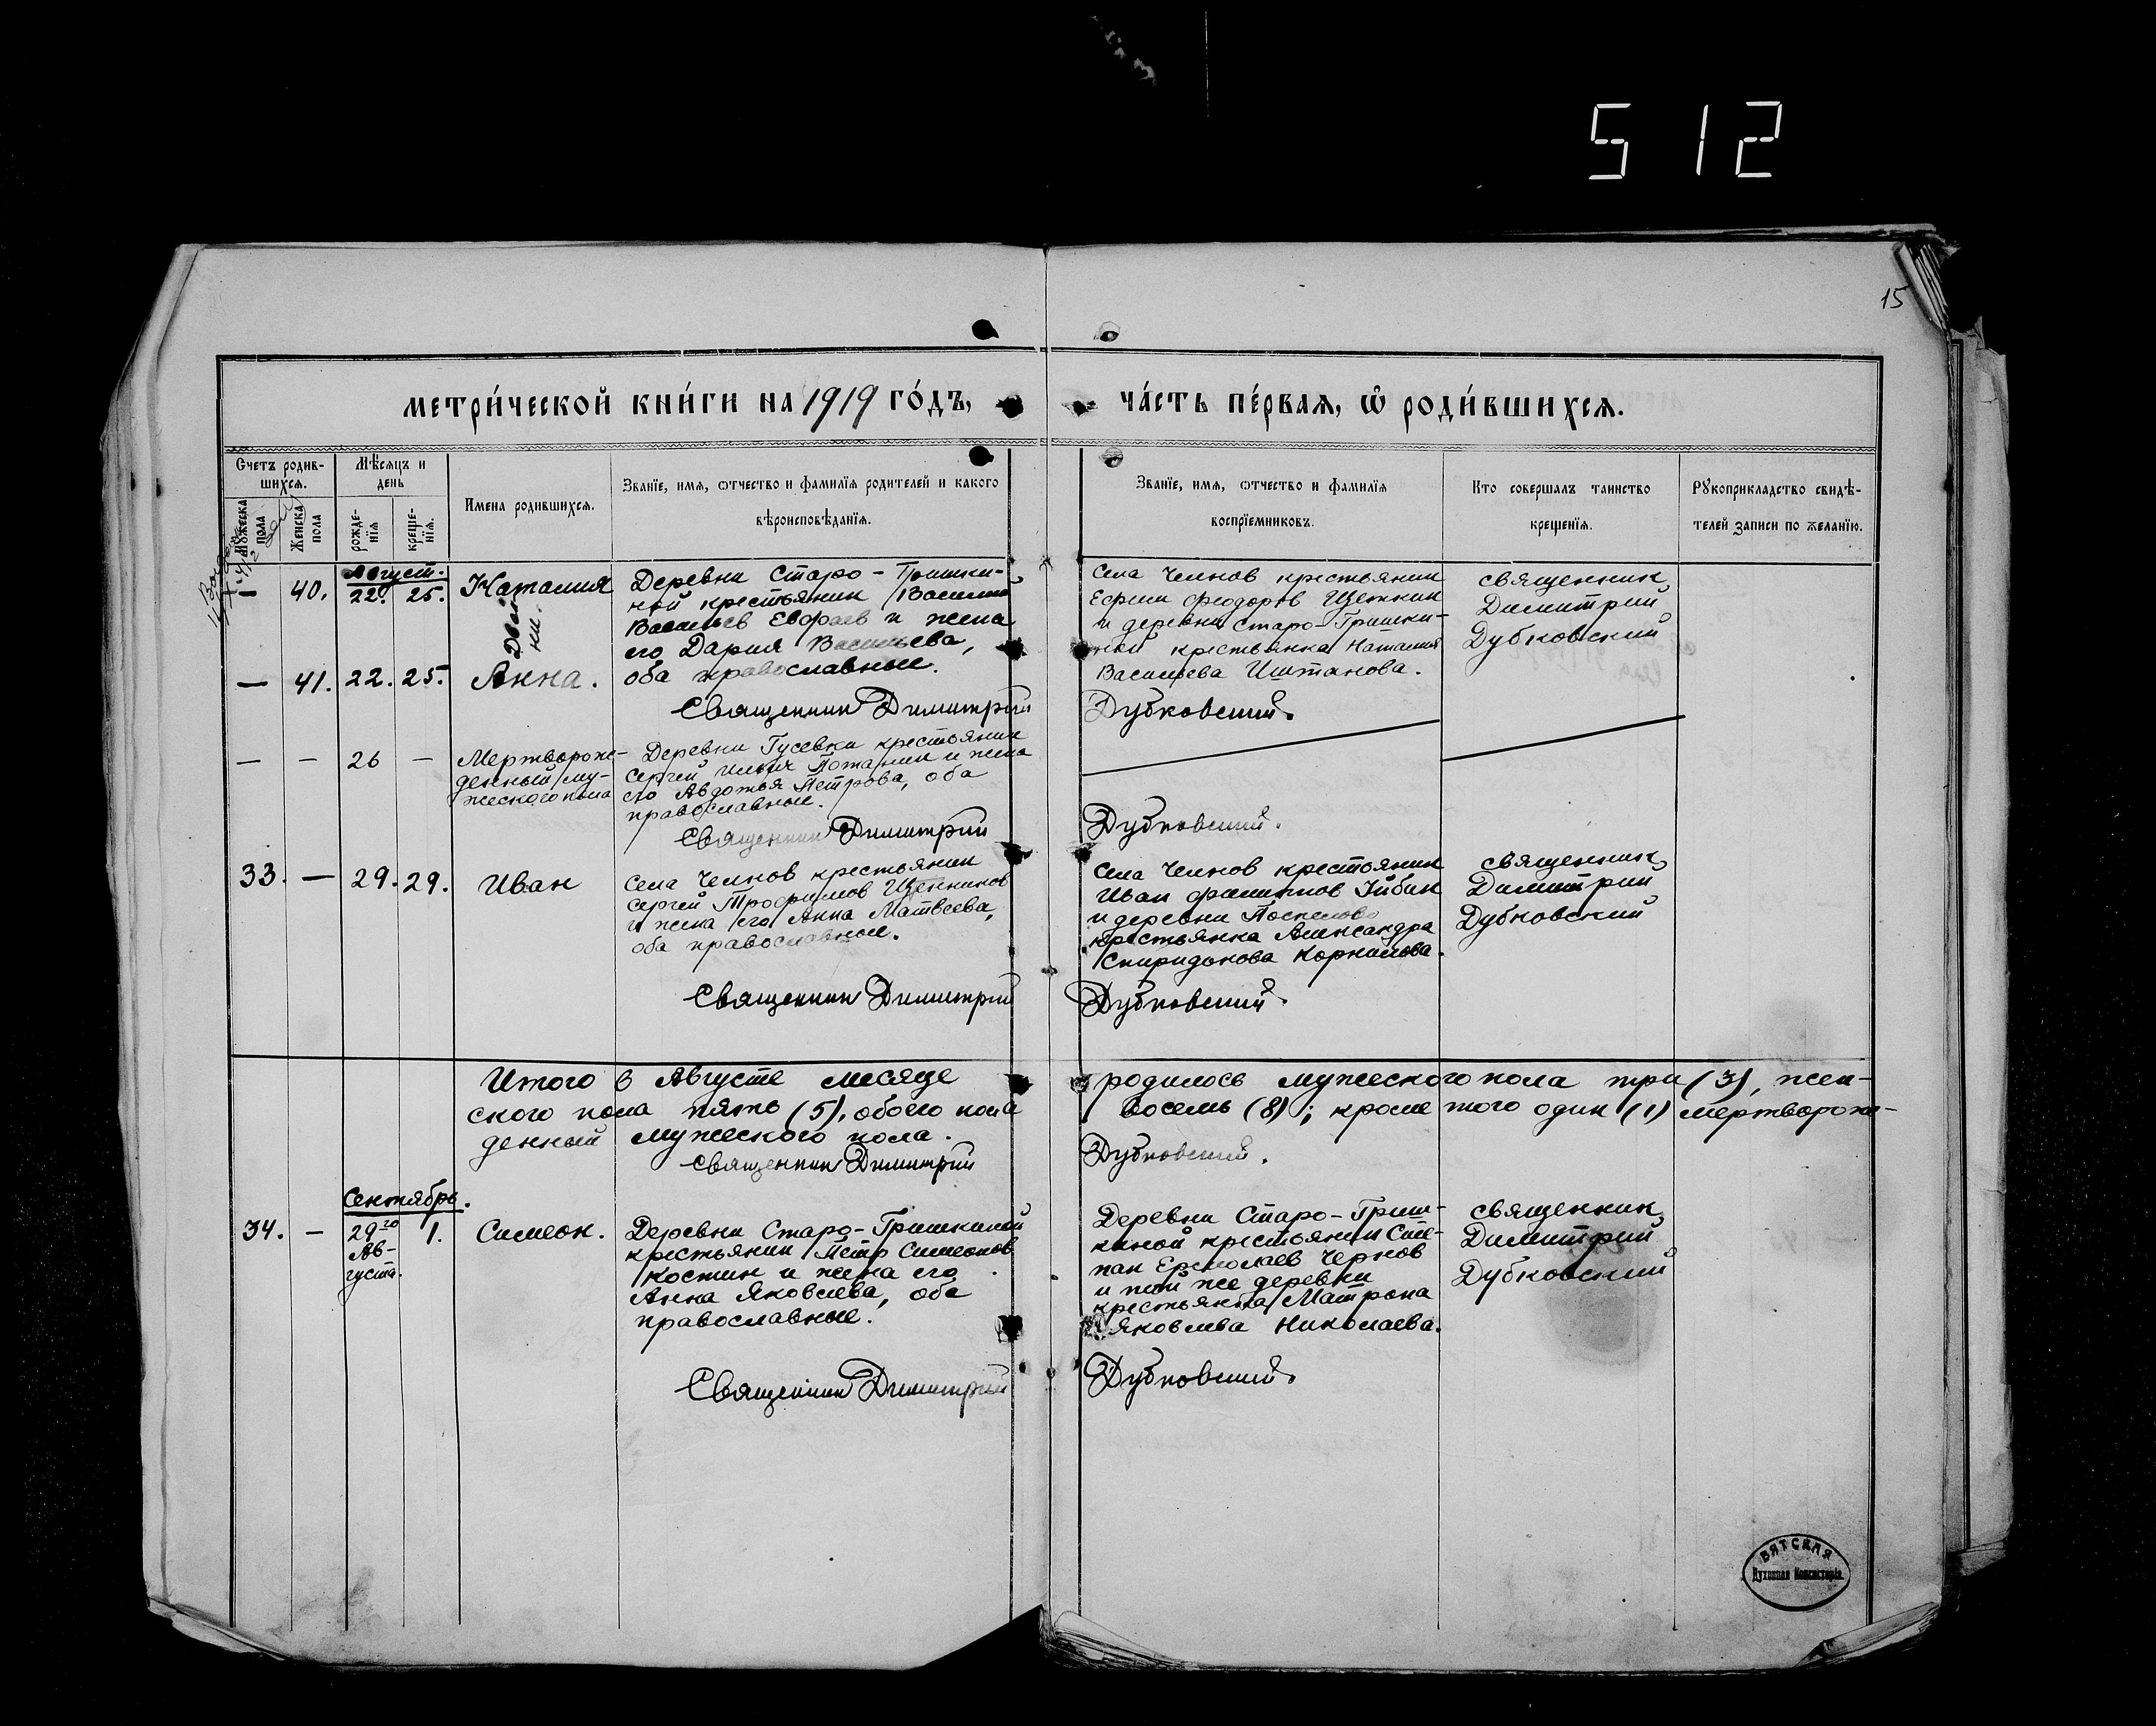 512
15
метри́ческой кни́ги на 1919 го́дъ,
ча́сть пе́рвая, ѡ роди́вшихся.
Счетъ родив-
шихся.
Мѣсяцъ и
день
Имена родившихся.
Званїе, имя, ѿтчество и фамилїя родителей и какого
вѣроисповѣданїя.
Званїе, имя, ѿтчество и фамилїя
воспрїемниковъ.
Кто совершалъ таинство
крещенїя.
Рꙋкоприкладство свидѣ-
телей записи по желанїю.
Мꙋжеска
пола
Женска
пола
рожде-
нїя
креще-
нїя.
Август.
— 40. 22. 25. Наталия
Двой-
ни.
— 41. 22. 25. Анна.
Деревни Старо-Гришки-
ной крестьянин Василий
Васильев Евдраев и жена
его Дария Васильева,
оба православные.
Села Челнов крестьянин
Ефрем Феодоров Щенкин
и деревни Старо-Гришки-
ной крестьянка Наталия
Васильева Иштанова.
священник
Димитрий
Дубковский
Священник Димитрий Дубковский.
— — 26 — Мертворож-
денный му-
жеского пола
Деревни Гусевки крестьянин
Сергей Ильич Потанин и жена
его Авдотья Петрова, оба
православные.
Священник Димитрий Дубковский.
33. — 29. 29. Иван
Села Челнов крестьянин
Сергей Трофимов Щенников
и жена его Анна Матвеева,
оба православные.
Села Челнов крестьянин
Иван Филиппов Зыбин
и деревни Поспелово
крестьянка Александра
Спиридонова Корнилова.
священник
Димитрий
Дубковский
Священник Димитрий Дубковский.
Итого в Августе месяце родилось мужеского пола три (3), жен-
ского пола пять (5), обоего пола восемь (8); кроме того один (1) мертворож-
денный мужеского пола.
Священник Димитрий Дубковский.
Сентябрь.
34. — 29го 1. Симеон.
Ав-
густа.
Деревни Старо-Гришкиной
крестьянин Петр Симеонов
Костин и жена его
Анна Яковлева, оба
православные.
Деревни Старо-Гриш-
киной крестьянин Сте-
пан Ермолаев Чернов
и той же деревни
крестьянка Матрона
Яковлева Николаева.
священник
Димитрий
Дубковский
Священник Димитрий Дубковский.
ВЯТСКАЯ
Духовная Консисторія.